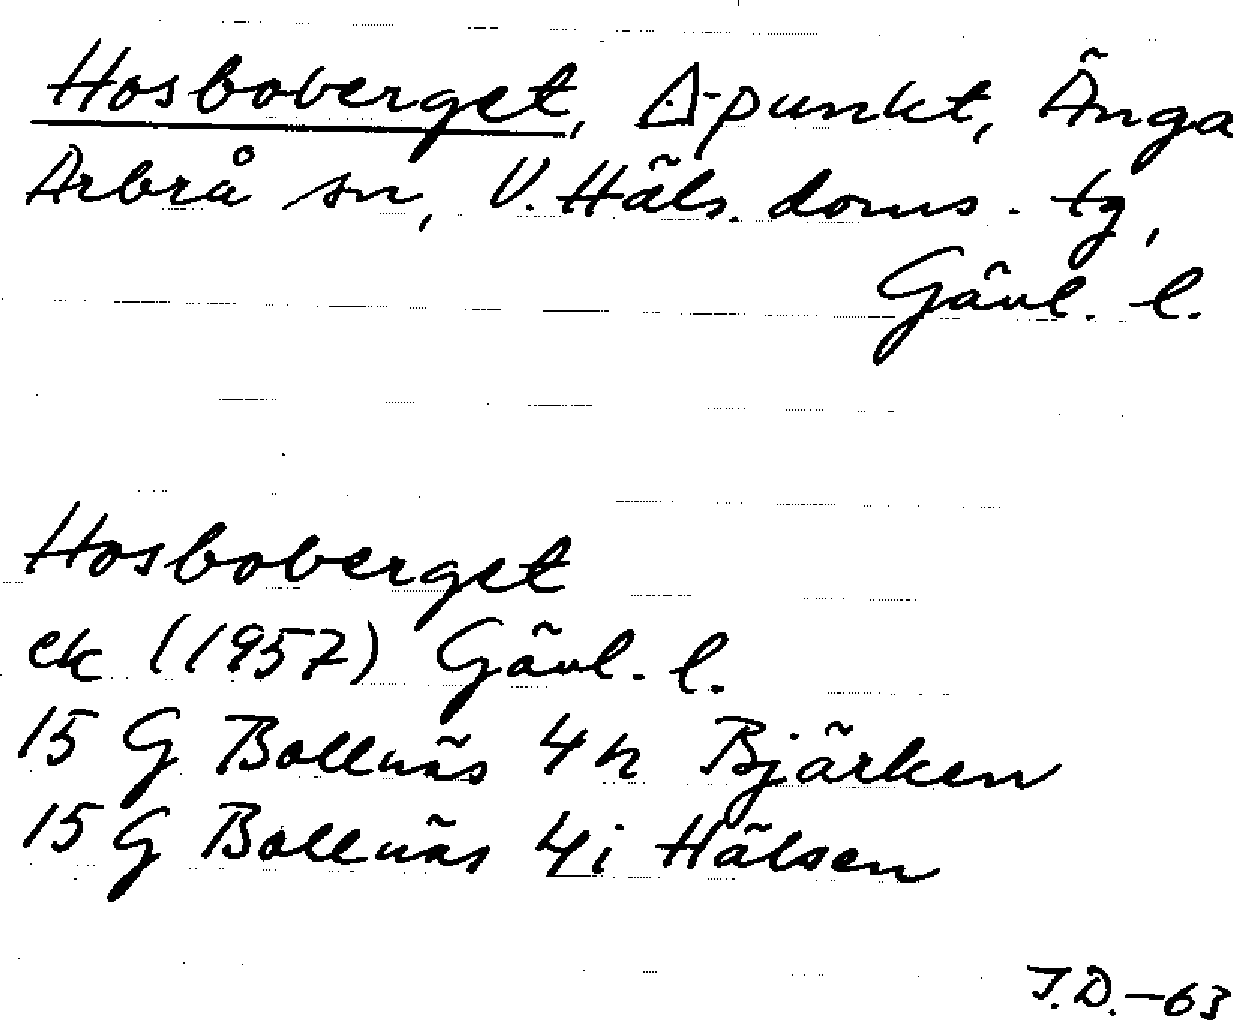 Hosboberget, △-punkt, Änga
Arbrå sn, V. Häls. doms. tg,
Gävl. l.
Hosboberget
ek (1957) Gävl. l.
15 G Bollnäs 4 h Bjärken
15 G Bollnäs 4i Hälsen
J.D.-63